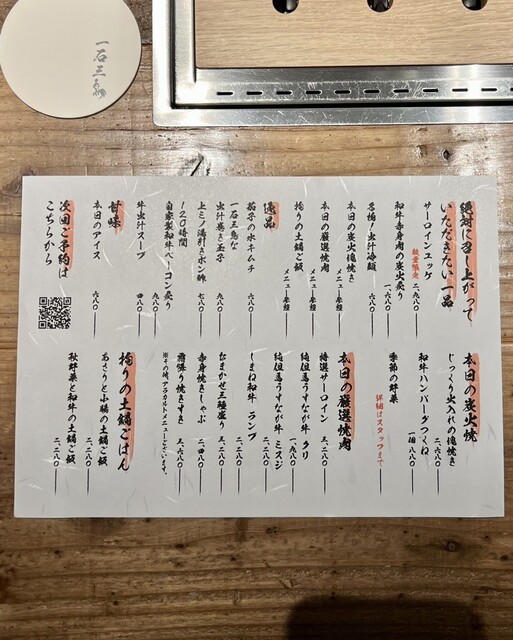 一石三鳥
絶対に召し上がって
いただきたい一品
サーロインユッケ
数量限定
二、九八〇
和牛赤身肉の炭火炙り
一、六八〇
名物!出汁冷麺
六八〇
本日の炭火塊焼き
メニュー参照
本日の厳選焼肉
メニュー参照
拘りの土鍋ご飯
メニュー参照
逸品
茄子の水キムチ
六八〇
一石三鳥な
出汁巻き玉子
九八〇
上ミノ湯引きポン酢
七八〇
120時間
自家製和牛ベーコン炙り
九八〇
牛出汁スープ
四八〇
甘味
本日のアイス
六八〇
次回ご予約は
こちらから
本日の炭火焼
じっくり火入れの塊焼き
二、六八〇
和牛ハンバーグつくね
一個 八八〇
季節の野菜
詳細はスタッフまで
本日の厳選焼肉
特選サーロイン
三、二八〇
純但馬うすなが牛 クリ
一、九八〇
純但馬うすなが牛 ミスジ
二、二八〇
しまね和牛 ランプ
二、二八〇
おまかせ三種盛り
三、二八〇
赤身焼きしゃぶ
二、四八〇
霜降り焼きすき
三、六八〇
※その他アラカルトメニューございます。
拘りの土鍋ごはん
あさりと小腸の土鍋ご飯
二、二八〇
秋野菜と和牛の土鍋ご飯
二、二八〇